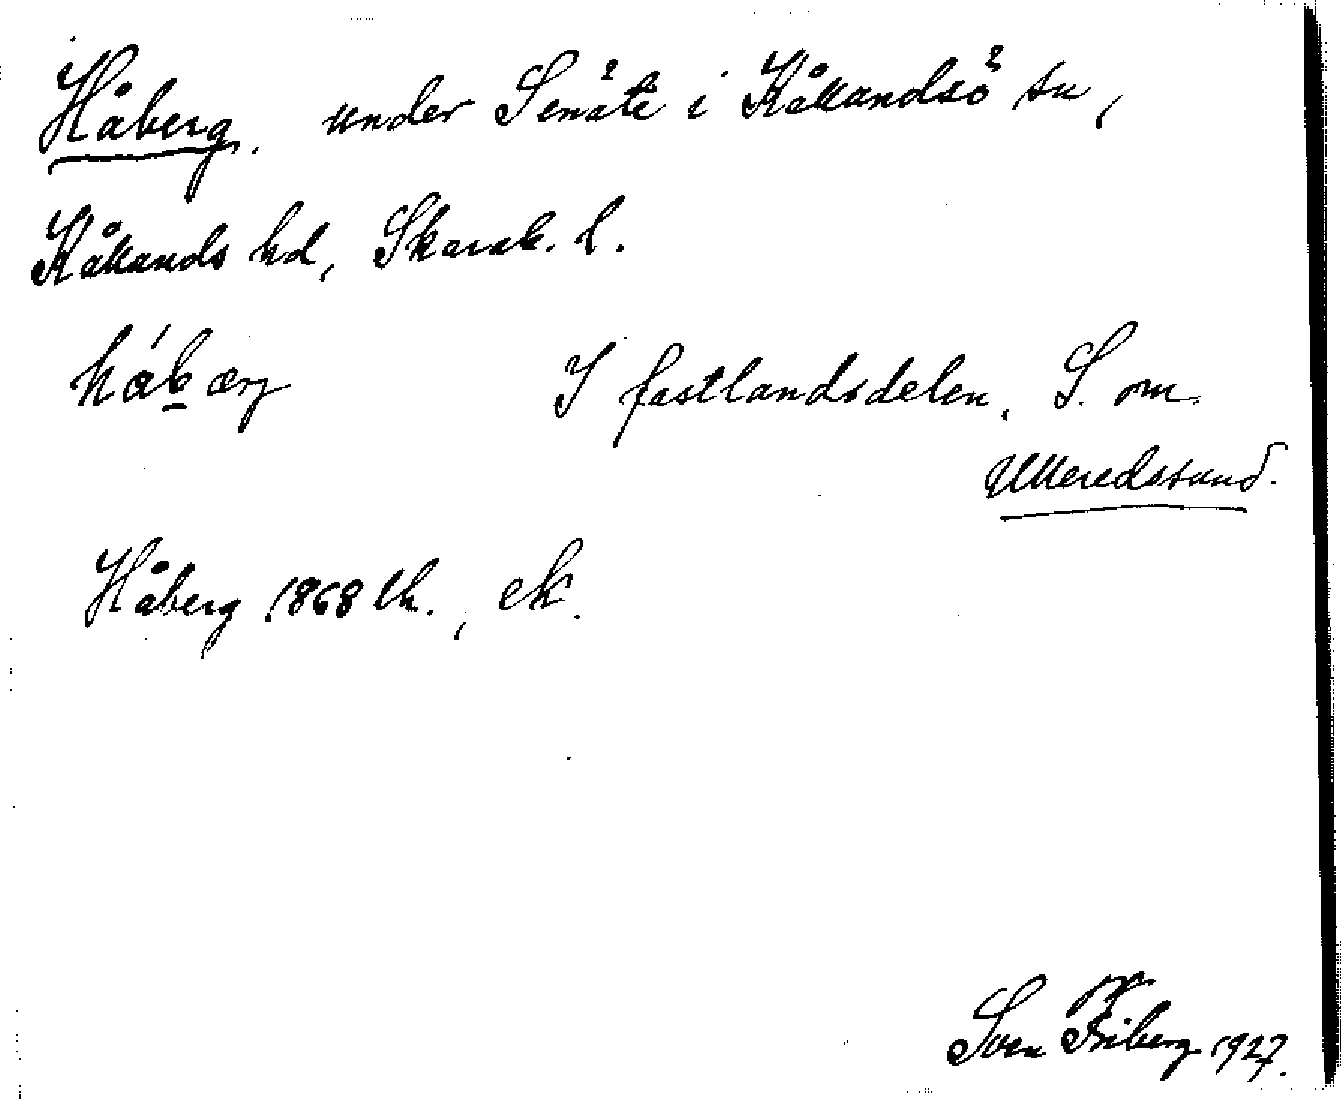 Håberg, under Senäte i Kållandsö sn,
Kållands hd, Skarab. l.
hábærj I fastlandsdelen, S. om
Ulleredssund.
Håberg 1868 lk., ek.
Sven Friberg 1927.